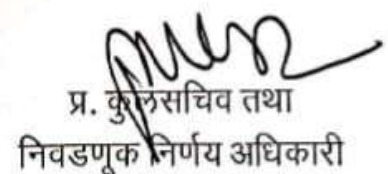 प्र. कुलसचिव तथा
निवडणूक निर्णय अधिकारी